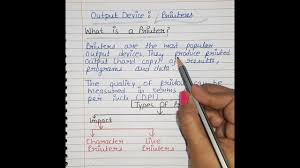 Output Device : Printers
What is a Printer?
Printers are the most popular
output devices. They produce printed
output (hard copy) of results,
programs and data.
The quality of printer can be
measured in terms
per inch (DPI).
Types of
Impact
Character Line
Printers Printers